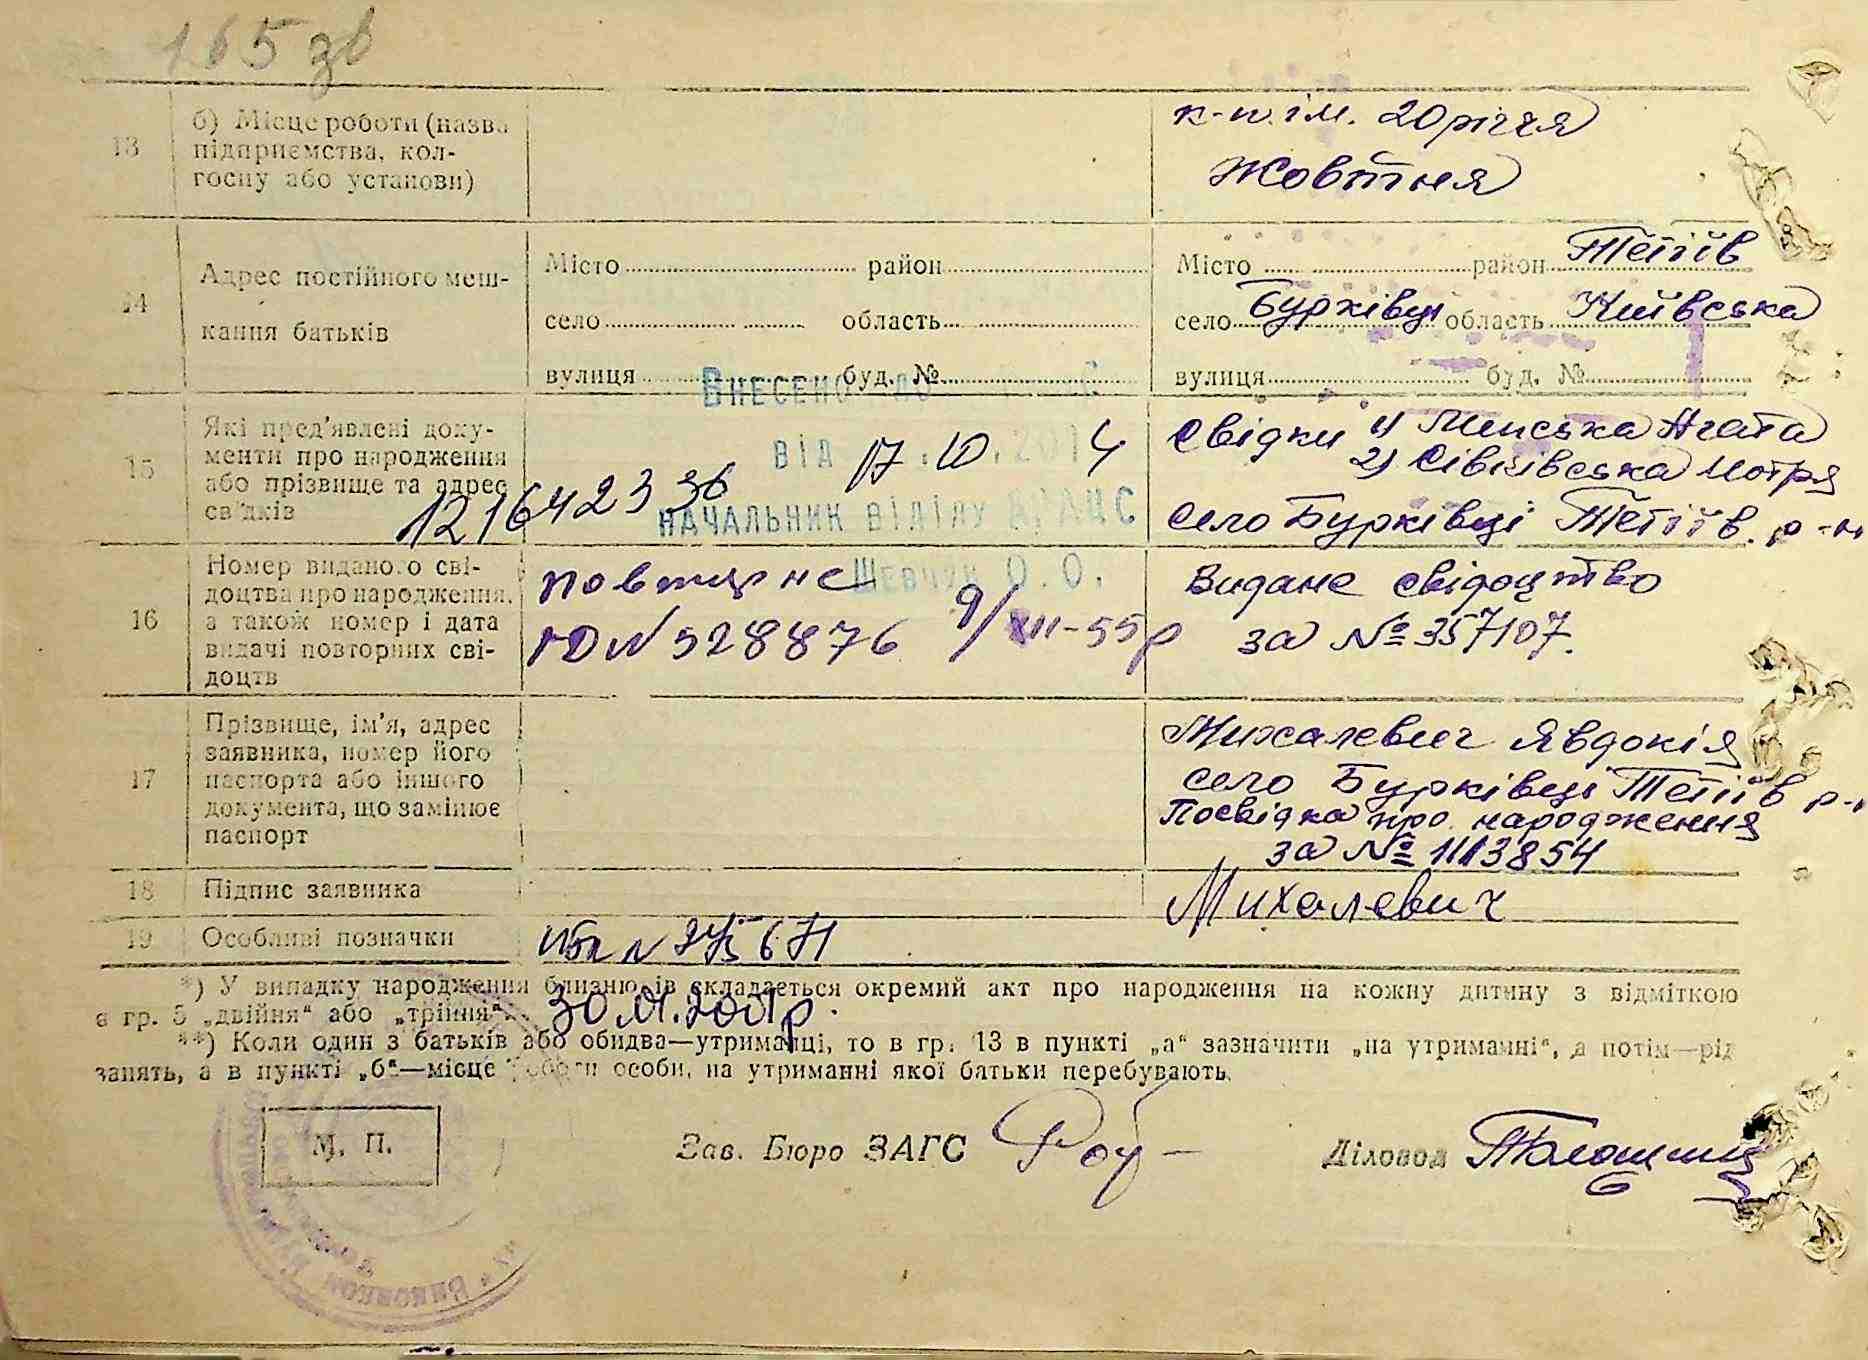 165 зв
13
б) Місце роботи (назва
підприємства, кол-
госпу або установи)
к-п. ім. 20 річчя
Жовтня
14
Адрес постійного меш-
кання батьків
Місто район
село область
вулиця буд. №
Місто район Тетіїв
село Бурківці область Київська
вулиця буд. №
15
Які пред'явлені доку-
менти про народження
або прізвище та адрес
свідків
Внесено до
від 17.10.2014
1216423 36
начальник відділу ДРАЦС
Шевчук О. О.
Свідки 1) Агата
2) Мотря
село Бурківці Тетіїв. р-н
16
Номер виданого сві-
доцтва про народження,
а також номер і дата
видачі повторних сві-
доцтв
повторне
ЮN 528876 9/XII-55р
Видане свідоцтво
за № 357107.
17
Прізвище, ім'я, адрес
заявника, номер його
паспорта або іншого
документа, що замінює
паспорт
Михалевич Явдокія
село Бурківці Тетіїв р-н
Посвідка про народження
за № 1113854
18
Підпис заявника
Михалевич
19
Особливі позначки
N 275671
30.01.2001р.
*) У випадку народження близнюків складається окремий акт про народження на кожну дитину з відміткою
в гр. 5 „двійня“ або „трійня“.
**) Коли один з батьків або обидва—утриманці, то в гр. 13 в пункті „а“ зазначити „на утриманні“, а потім—рід
занять, а в пункті „б“—місце роботи особи, на утриманні якої батьки перебувають.
М. П.
Зав. Бюро ЗАГС
Діловод